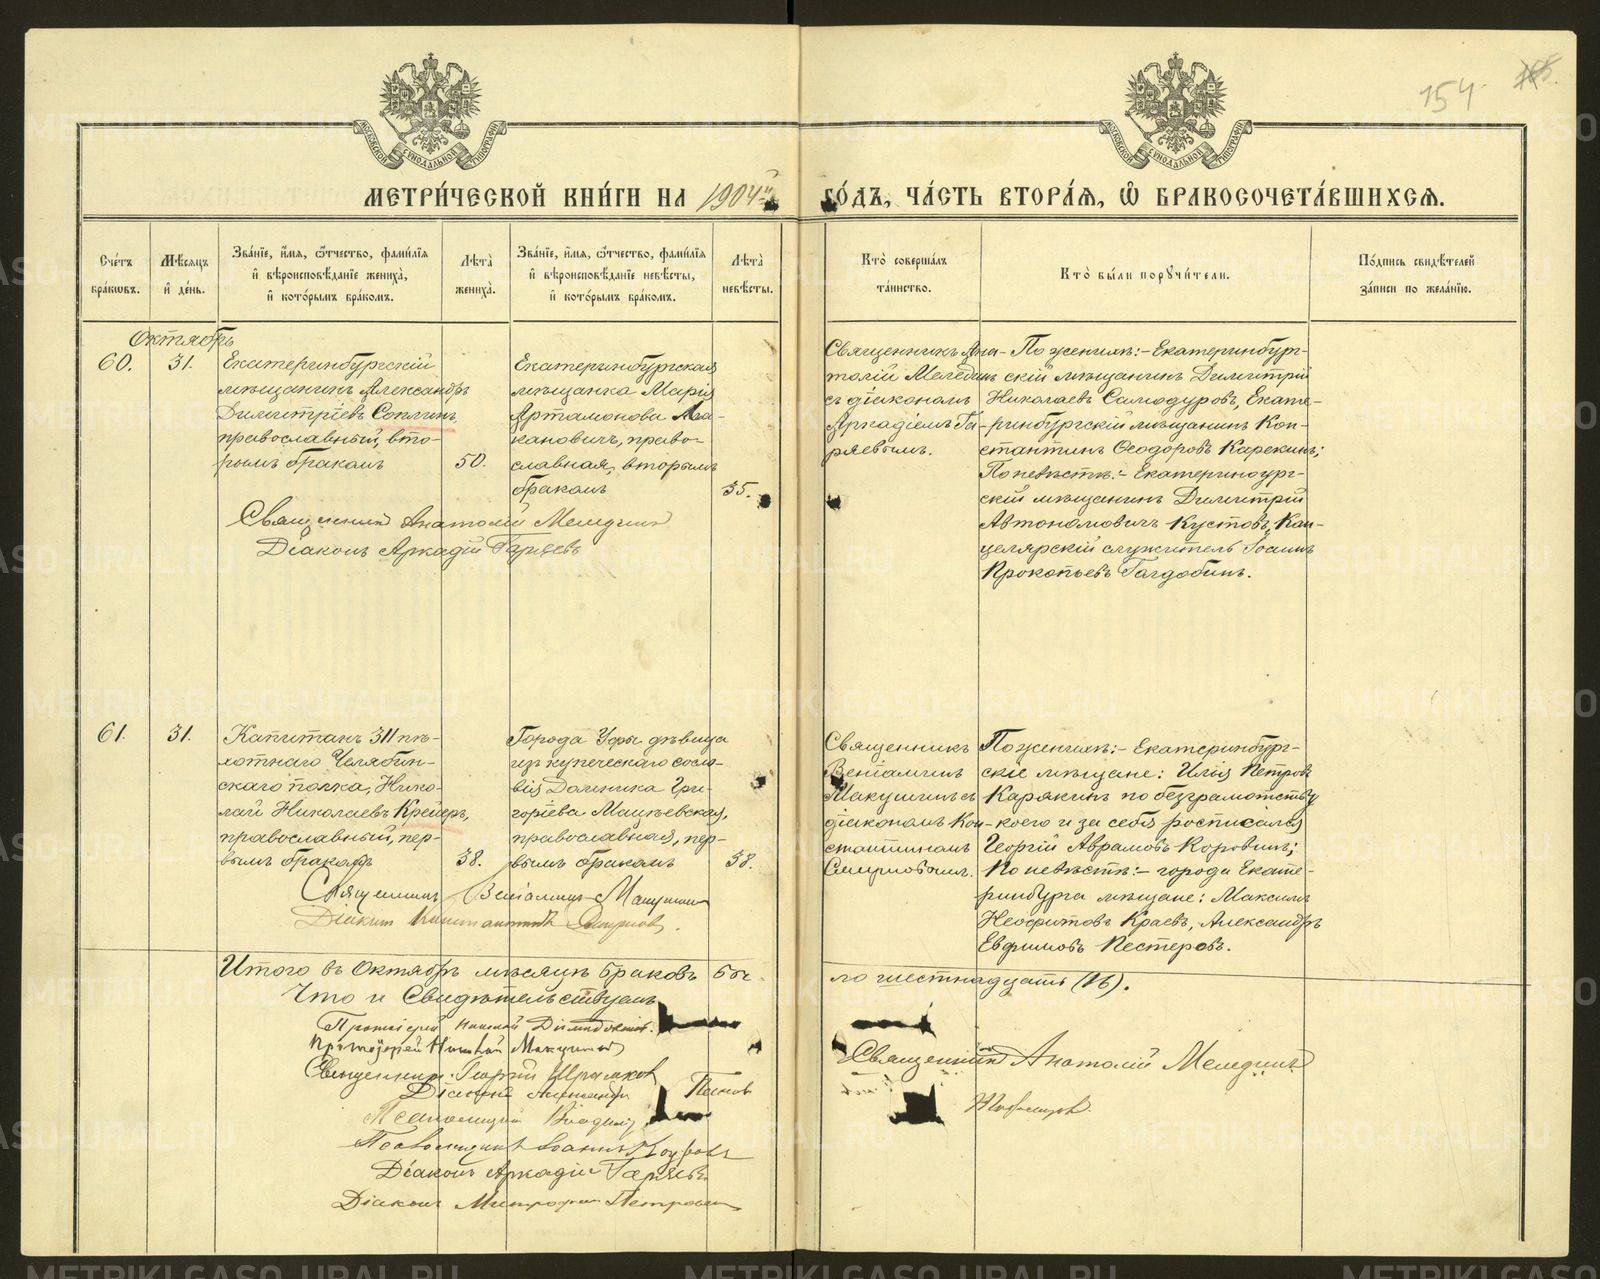 154
МЕТРИ́ЧЕСКОЙ КНИ́ГИ НА 1904й ГО́ДЪ, ЧА́СТЬ ВТОРА́Я, Ѿ БРАКОСОЧЕТА́ВШИХСЯ.
МОСКОВСКОЙ СѴНОДАЛЬНОЙ ТИПОГРАФІИ
МОСКОВСКОЙ СѴНОДАЛЬНОЙ ТИПОГРАФІИ
Сче́тъ
бра́кωвъ.
Мѣ́сяцъ
и҆ де́нь.
Зва́нїе, и҆́мя, ѻ҆́тчество, фами́лїя
и҆ вѣроисповѣ́данїе жениха̀,
и҆ кото́рымъ бра́комъ.
Лѣ́та̀
жениха̀.
Зва́нїе, и҆́мя, ѻ҆́тчество, фами́лїя
и҆ вѣроисповѣ́данїе невѣ́сты,
и҆ кото́рымъ бра́комъ.
Лѣ́та̀
невѣ́сты.
Кто̀ соверша́лъ
та́инство.
Кто̀ бы́ли порꙋчи́тели.
По́дпись свидѣ́телей
за́писи по жела́нїю.
Октябрь
60.
31.
Екатеринбургскій
мѣщанинъ Александръ
Димитріевъ Соплинъ,
православный, вто-
рымъ бракомъ
50.
Екатеринбургская
мѣщанка Марія
Артамонова Ма-
кановичъ, право-
славная, вторымъ
бракомъ
35.
Священникъ Ана-
толій Мелединъ
съ діакономъ
Аркадіемъ Га-
ряевымъ.
По женихѣ:- Екатеринбург-
скій мѣщанинъ Димитрій
Николаевъ Самодуровъ, Екате-
ринбургскій мѣщанинъ Кон-
стантинъ Ѳеодоровъ Карекинъ;
По невѣстѣ:- Екатеринбург-
скій мѣщанинъ Димитрій
Автономовичъ Кустовъ, Кан-
целярскій служитель Іоаннъ
Прокопьевъ Гагдобинъ.
Священникъ Анатолій Мелединъ
Діаконъ Аркадій Гаряевъ
61.
31.
Капитанъ 311 пѣ-
хотнаго Челябин-
скаго полка, Нико-
лай Николаевъ Крейеръ,
православный, пер-
вымъ бракомъ
38.
Города Уфы дѣвица
изъ купеческаго сосло-
вія Домника Гри-
горіева Мацѣевская,
православная, пер-
вымъ бракомъ
38.
Священникъ
Веніаминъ
Макушинъ съ
діакономъ Кон-
стантиномъ
Смирновымъ.
По женихѣ:- Екатеринбург-
скіе мѣщане: Илія Петровъ
Карякинъ по безграмотству
коего и за себя росписался
Георгій Аврамовъ Коровинъ;
По невѣстѣ:- города Екате-
ринбурга мѣщане: Максимъ
Неофитовъ Краевъ, Александръ
Евфимовъ Пестеровъ.
Священникъ Веніаминъ Макушинъ
Діаконъ Константинъ Смирновъ.
Итого въ Октябрѣ мѣсяцѣ браковъ бы-
ло шестнадцать (16).
Что и Свидѣтельствуемъ
Протоіерей Николай
Протоіерей
Священникъ Георгій
Діаконъ Александръ Пановъ
Псаломщикъ
Псаломщикъ Іоаннъ
Діаконъ Аркадій Гаряевъ
Діаконъ Митрофанъ Петровъ
Священникъ Анатолій Мелединъ
METRIKI.GASO-URAL.RU